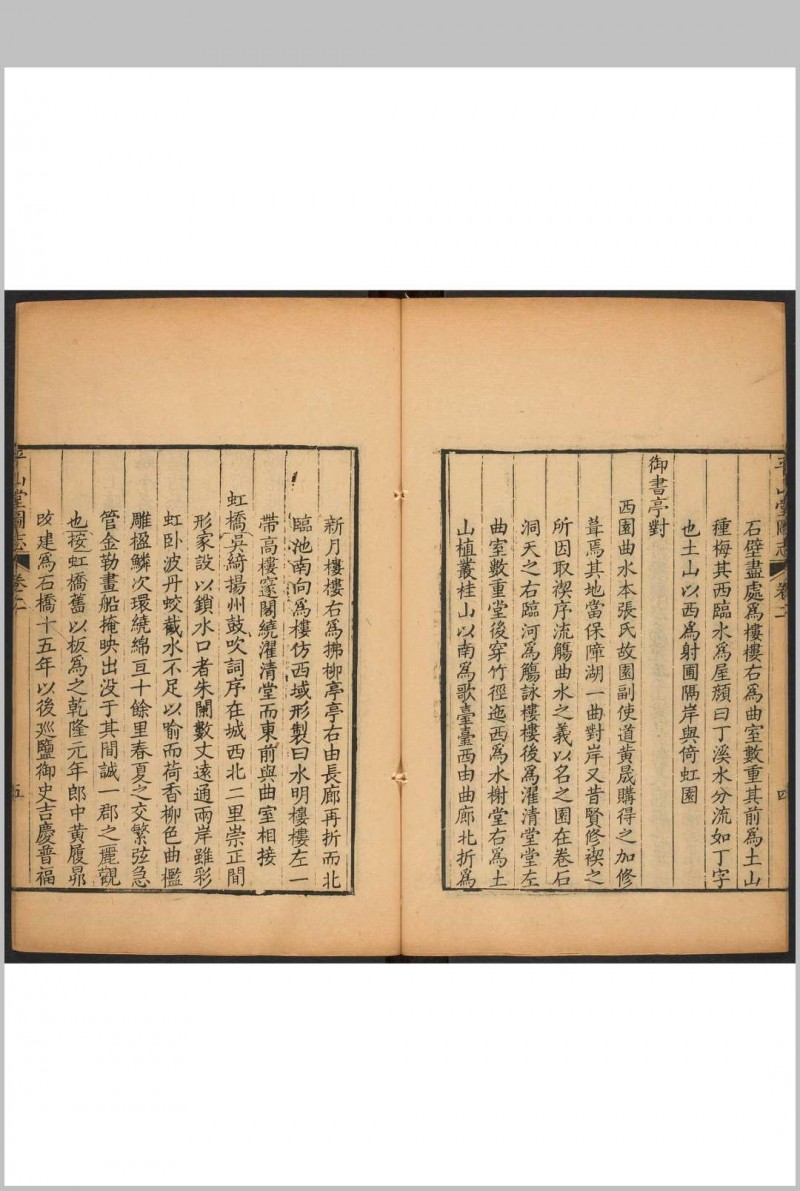 平山堂圖志 卷二 四
石壁盡處爲樓樓右爲曲室數重其前爲土山
種梅其西臨水爲屋顏曰丁溪水分流如丁字
也土山以西爲射圃隔岸與倚虹園
御書亭對
西園曲水本張氏故園副使道黃晟購得之加修
葺焉其地當保障湖一曲對岸又昔賢修禊之
所因取禊序流觴曲水之義以名之園在卷石
洞天之右臨河爲觴詠樓樓後爲濯清堂堂左
曲室數重堂後穿竹徑迤西爲水榭堂右爲土
山植叢桂山以南爲歌臺臺西由曲廊北折爲
新月樓樓右爲拂柳亭亭右由長廊再折而北
臨池南向爲樓仿西域形製曰水明樓樓左一
帶高樓邃閣繞濯清堂而東前與曲室相接
虹橋吳綺揚州鼓吹詞序在城西北二里崇正間
形家設以鎖水口者朱闌數丈遠通兩岸雖彩
虹卧波丹蛟截水不足以喻而荷香柳色曲檻
雕楹鱗次環繞綿亘十餘里春夏之交繁弦急
管金勒畫船掩映出没于其間誠一郡之麗觀
也按虹橋舊以板爲之乾隆元年郎中黃履昴
改建爲石橋十五年以後巡鹽御史吉慶普福
平山堂圖志 卷二 五